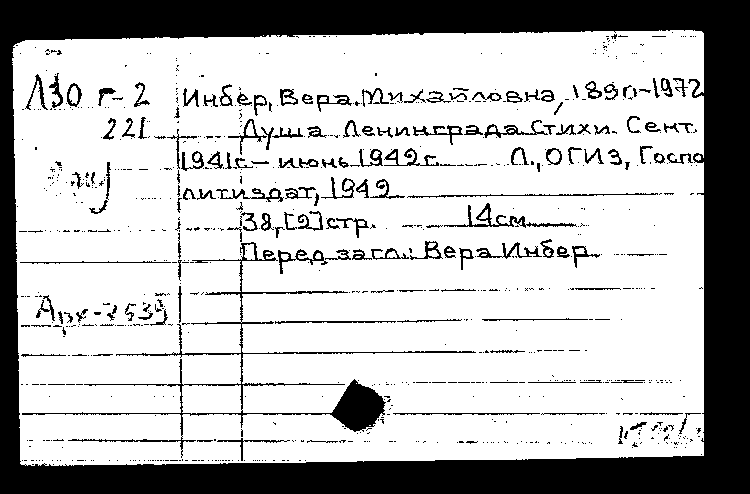 Л30 г-2
221
Инбер, Вера Михайловна, 1890-1972
Душа Ленинграда. Стихи. Сент.
1941г.- июнь 1942г. Л., ОГИЗ, Госпо
литиздат, 1942
38, [2] стр. 14см
Перед загл.: Вера Инбер.
Арх-7539